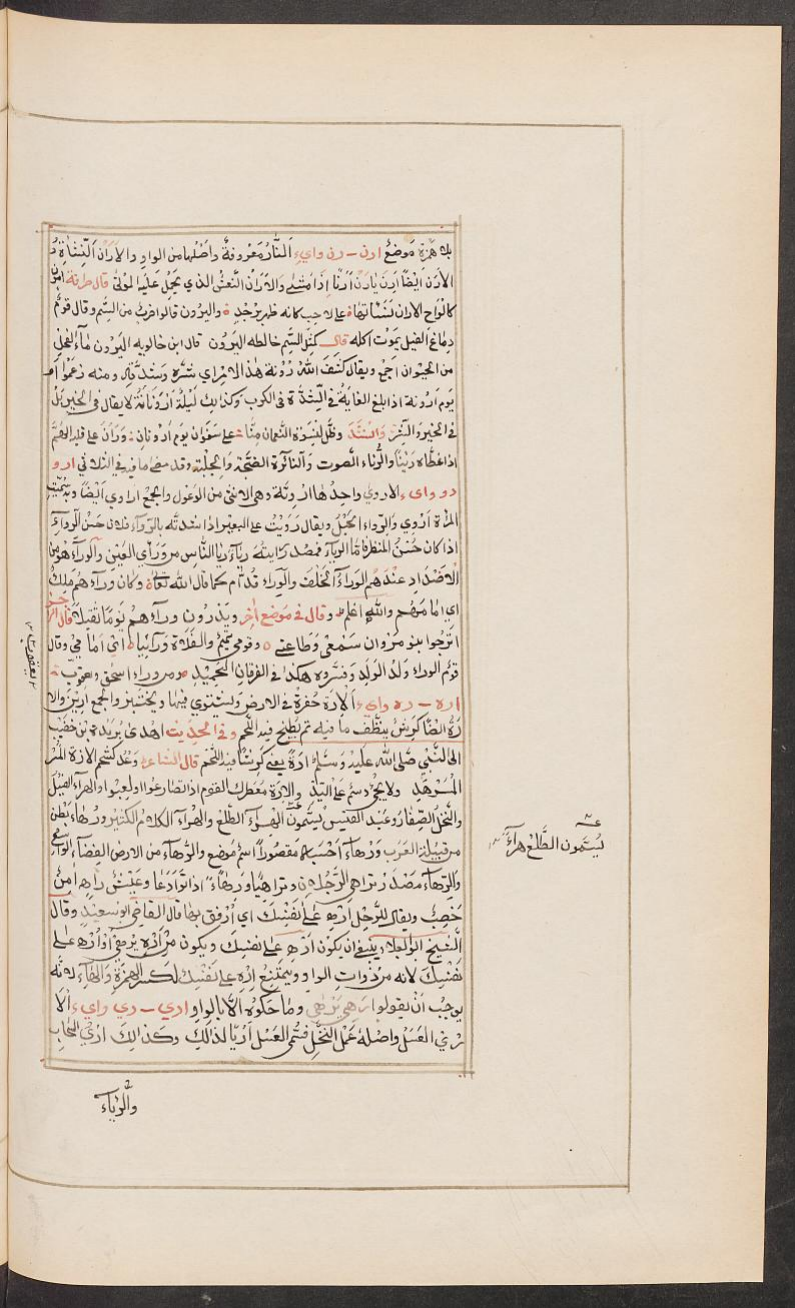 بلا همزة موضع ارن - رن واي، النار معروفة واصلها من الواو والاران النشاط و
الارن ايضا ارن يارن ارنا اذا نشط والاران النعش الذي يحمل عليه الموتى قال طرفة امون
كالواح الاران نسأتها على لاحب كانه ظهر برجد واليرون قالوا ضرب من السم وقال قوم
دماغ الفيل يموت اكله قال كمثل السم خالطه اليرون قال ابن خالويه اليرون ماء الفحل
من الحيوان اجمع ويقال كشف الله رونة هذا الامر اي شره وشدته ومنه زعموا
يوم ارونة اذا بلغ الغاية في الشدة في الكرب وكذلك ليلة ارونانة لا يقال في الخير بل
في الخير والشر وانشد وظل لنسوة النعمان منا على سفوان يوم اروناني وران على قلبه الهم
اذا غطاه رينا والرناء الصوت والنائرة الضجة والجلبة وقد مضى ما فيه في الثلاثي ارو
رو واي، الاروي واحدها اروية وهي الانثى من الوعول والجمع اراوي ايضا وبه سميت
المراة اروي والرواء الحبل ويقال رويت على البعير اذا شددته بالرواء فلان حسن الرواء
اذا كان حسن المنظر فاما الرياء فمصدر راييته رياء ريا الناس من وراي العين والوراء هو من
الاضداد عندهم الوراء الخلف والوراء قدام كما قال الله تعالى وكان وراءهم ملك
اي امامهم والله اعلم وقال في موضع اخر ويذرون وراءهم يوما ثقيلا قال
اترجوا بنو مروان سمعي وطاعتي وقومي تميم والفلاة ورائيا اي امامي وقال
قوم الوراء ولد الولد وفسروه هكذا في الفرقان الحميد ومن وراء اسحق يعقوب
اره - ره واي، الارة حفرة في الارض ويشتوي فيها ويختبز والجمع ارين والا
رة ايضا كورش ينظف ما فيه ثم يطبخ فيه اللحم وفي الحديث اهدى بريدة بن خضيب
الى النبي صلى الله عليه وسلم ارة يعني كورشا فيه اللحم قال الشاعر وعد كشحم الارة المسر
المسرهد والارة معترك القوم اذا تصارعوا ولعبوا والهراء الفسيل
والنخل الصغار وعبد القيس يسمون الهراء الطلع والهراء الكلام الكثير ورهاء بطن
من قبيلة العرب ورهاء احسبه مقصورا اسم موضع والرهاء من الارض الفضاء الواسع
والرهاء مصدر تراهي الرجلان وتراهيا ورهاء اذا توادعا وعيش راه امن
خصب ويقال للرجل اره على نفسك اي ارفق بها قال القاضي ابو سعيد وقال
الشيخ ابو العلاء ينبغي ان يكون اره على نفسك ويكون من اره يرهي اذ اره على
نفسك لانه من ذوات الواو ويمتنع اره على نفسك لكسر الهمزة والهاء لانه
يوجب ان يقولوا رهي يرهي وما حكوه الا بالواو اري - ري واي، الا
ري العسل واصله عمل النحل فسمى العسل اريا لذلك وكذلك اري السحاب
والرياء
يسمون الطلع هراء
يعقوب